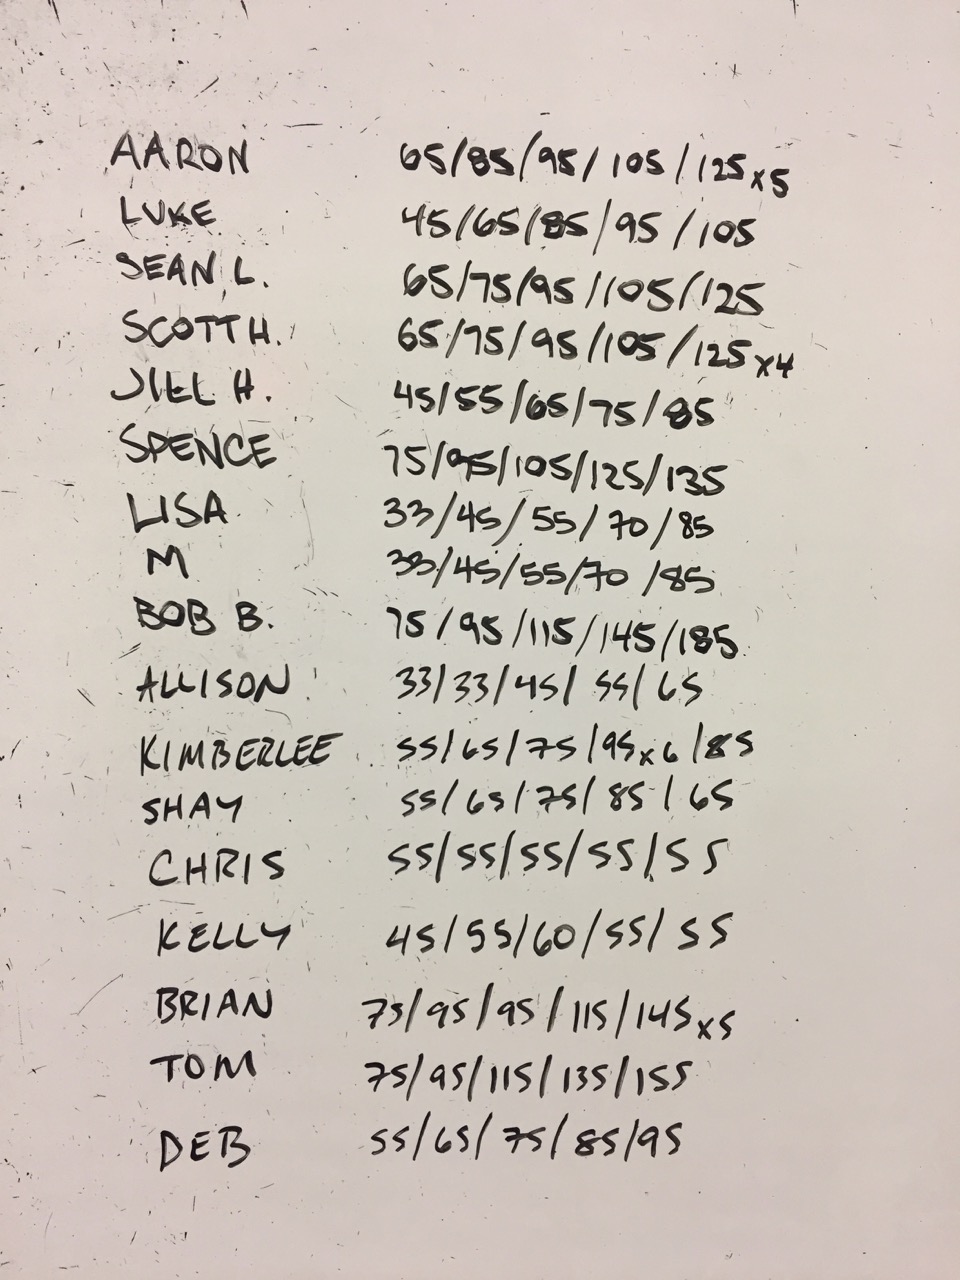 AARON 65/85/95/105/125x5
LUKE 45/65/85/95/105
SEAN L. 65/75/95/105/125
SCOTT H. 65/75/95/105/125x4
JILL H. 45/55/65/75/85
SPENCE 75/95/105/125/135
LISA 33/45/55/70/85
M 33/45/55/70/85
BOB B. 75/95/115/145/185
ALLISON 33/33/45/55/65
KIMBERLEE 55/65/75/95x6/85
SHAY 55/65/75/85/65
CHRIS 55/55/55/55/55
KELLY 45/55/60/55/55
BRIAN 75/95/95/115/145x5
TOM 75/95/115/135/155
DEB 55/65/75/85/95